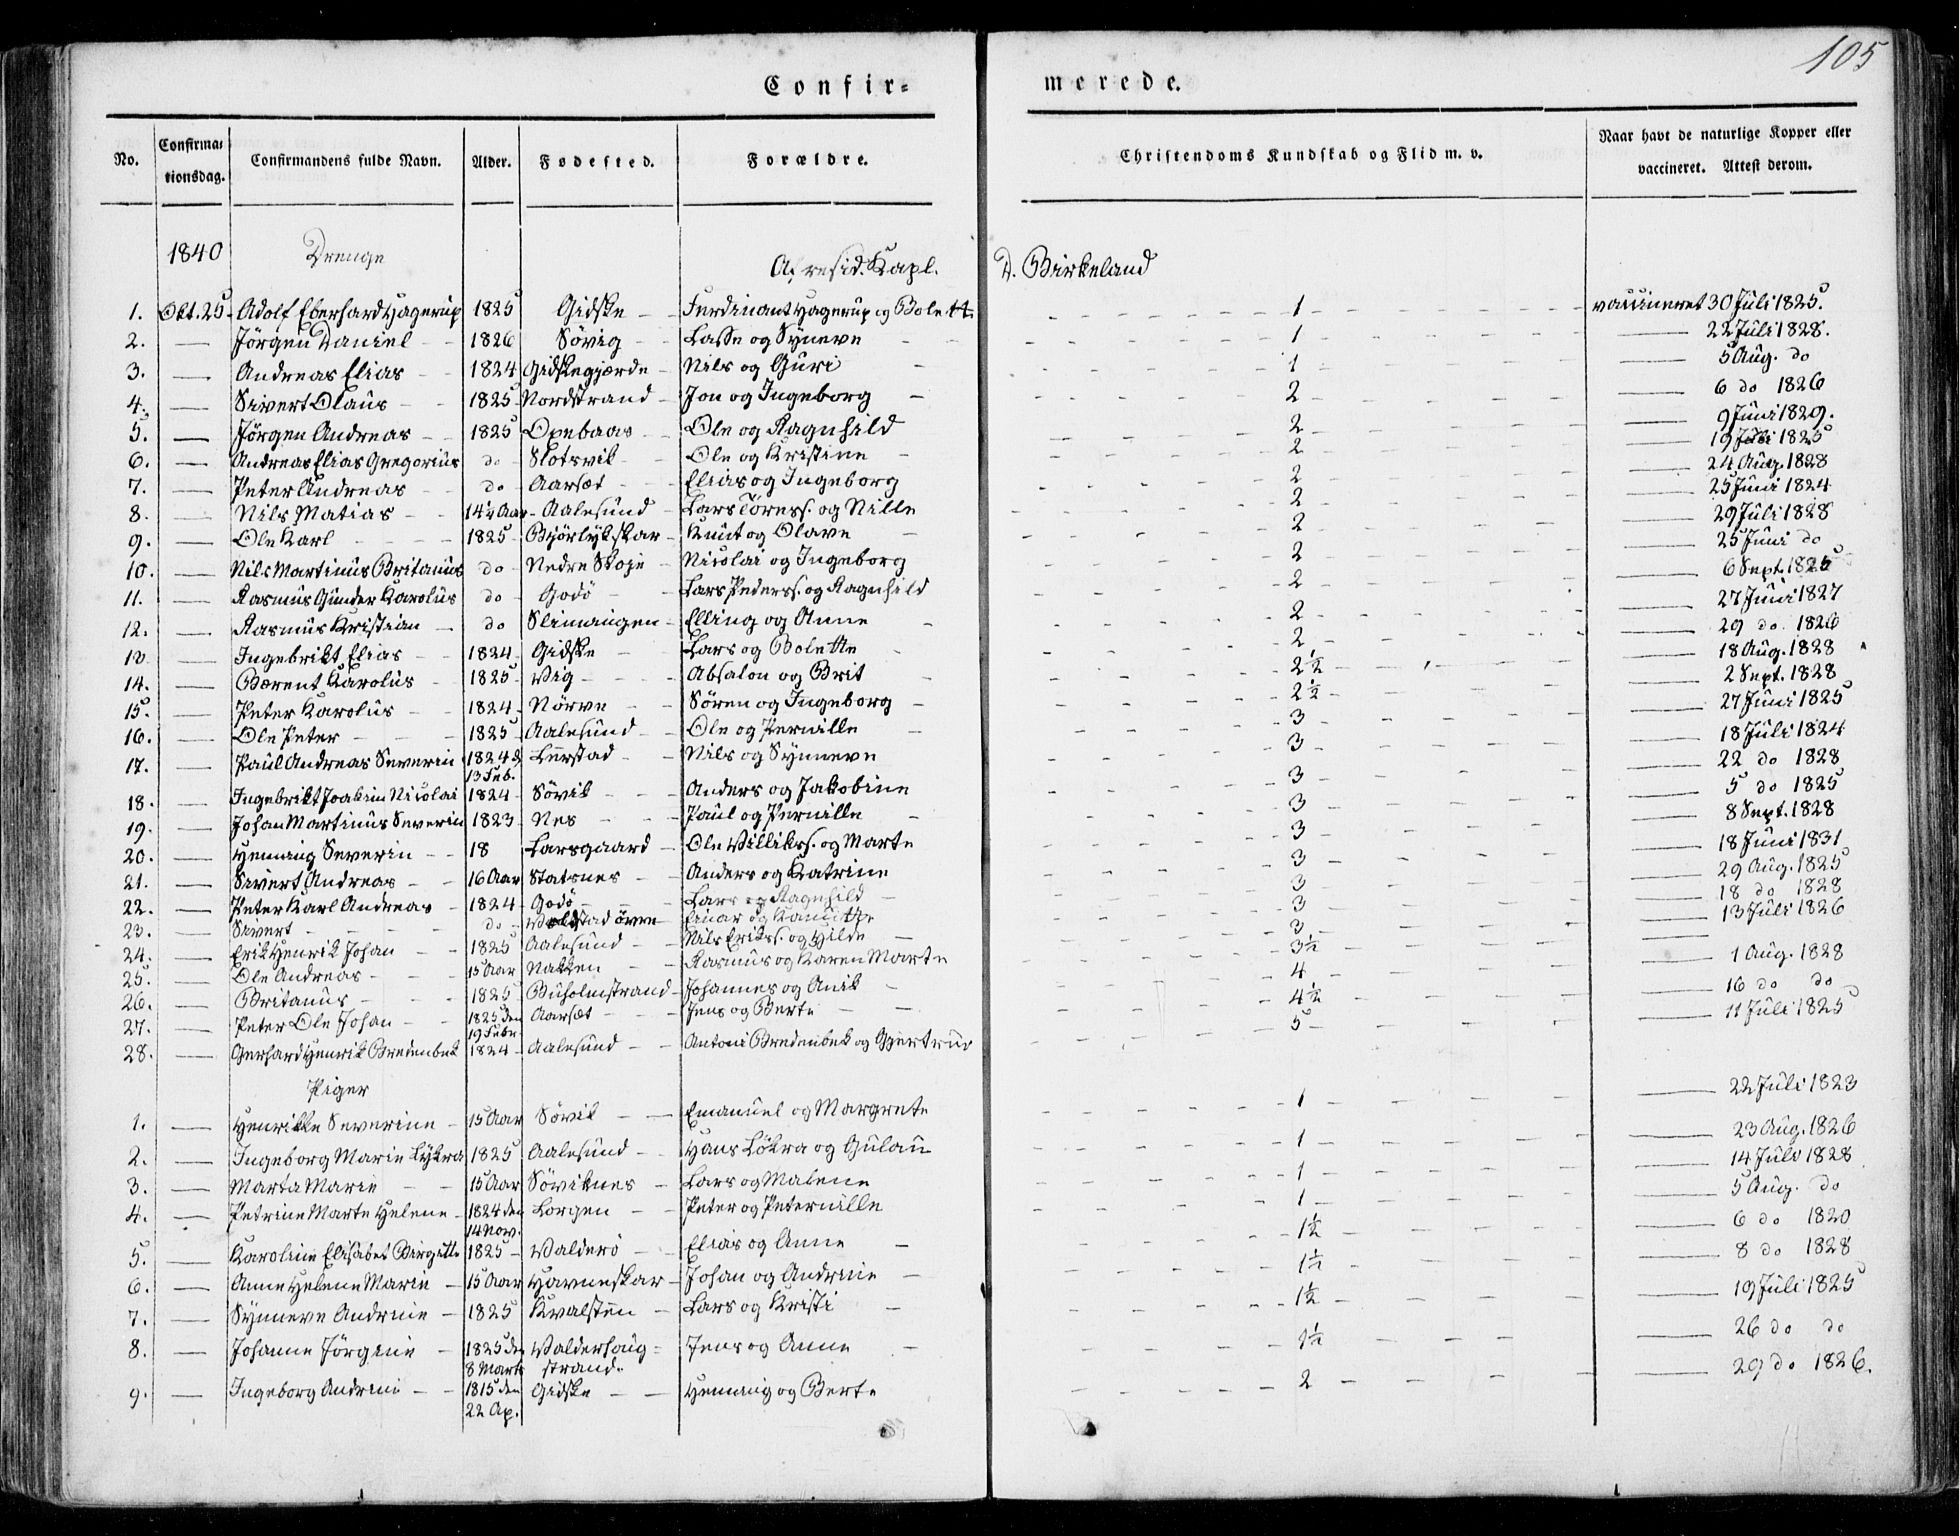 105
Confir=
merede.
No. Confirma=tionsdag. Confirmandens fulde Navn. Alder. Fødested. Forældre. Christendoms Kundskab og Flid m. v. Naar havt de naturlige Kopper eller vaccineret. Attest derom.
1840 Drenge Af resid. Kapl. D. Birkeland
1. Okt. 25 Adolf Eberhard Hagerup 1825 Gidske Ferdinant Hagerup og Bolette 1 vaccineret 30 Juli 1825.
2. — Jörgen Daniel 1826 Søvig Lasse og Syneve 1 — 22 Juli 1828.
3. — Andreas Elias 1824 Gidskegjærde Nils og Guri 1 — 5 Aug. do
4. — Sivert Olaus 1825 Nordstrand Jon og Ingeborg 2 — 6 do 1826
5. — Jörgen Andreas 1825 Oxebaas Ole og Ragnhild 2 — 9 Juni 1829.
6. — Andreas Elias Gregorius do Slotsvik Ole og Kristine 2 — 19 Juli 1825
7. — Peter Andreas do Aarsæt Elias og Ingeborg 2 — 24 Aug. 1828
8. — Nils Matias 14½ Aar Aalesund Lars Töress. og Nille 2 — 25 Juni 1824
9. — Ole Karl 1825 Bjørlykskar Knut og Olave 2 — 29 Juli 1828
10. — Nils Martinus Britanus do Nedre Skoje Nicolai og Ingeborg 2 — 25 Juni do
11. — Rasmus Gunder Karolus do Godö Lars Pederss. og Ragnhild 2 — 6 Sept. 1825
12. — Rasmus Kristian do Slimangen Elling og Anne 2 — 27 Juni 1827
13 — Ingebrikt Elias 1824 Gidske Lars og Bolette 2 — 29 do 1826
14. — Bærent Karolus 1825 Vig Absalon og Brit 2½ — 18 Aug. 1828
15. — Peter Karolus 1824 Nörve Sören og Ingeborg 2½ — 2 Sept. 1828
16. — Ole Peter 1825 Aalesund Ole og Pernille 3 — 27 Juni 1825
17. — Paul Andreas Severin 1824 d 13 Feb. Lerstad Nils og Synneve 3 — 18 Juli 1824
18. — Ingebrikt Joakim Nicolai 1824 Søvik Anders og Jakobine 3 — 22 do 1828
19. — Johan Martinus Severin 1823 Nes Paul og Pernille 3 — 5 do 1825
20. — Henning Severin 18 Larsgaard Ole Villikss. og Marte 3 — 8 Sept. 1828
21. — Sivert Andreas 16 Aar Statsnes Anders og Katrine 3 — 18 Juni 1831
22. — Peter Karl Andreas 1824 Godö Lars og Ragnhild 3 — 29 Aug. 1825
23. — Sivert do øvre Einar og 3 — 18 do 1828
24. — Erik Henrik Johan 1825 Aalesund Nils Erikss. og Hilde 3 — 13 Juli 1826
25. — Ole Andreas 15 Aar Nakken Rasmus og Karen Marte 3½ —
26. — Britanus 1825 Buholmstrand Johannes og Anik 4 — 1 Aug. 1828
27. — Peter Ole Johan 1825 den 19 Febr. Aarsæt Jens og Berte 4½ — 16 do do
28. — Gerhard Henrik Bredenbek 1824 Aalesund Antoni Bredenbek og Gjertrud 5 — 11 Juli 1825
Piger
1. — Henrikke Severine 15 Aar Søvik Emanuel og Margrete 1 — 22 Juli 1823
2. — Ingeborg Marie Lykra 1825 Aalesund Hans Lökra og Gulau 1 — 23 Aug. 1826
3. — Marta Marie 15 Aar Søviknes Lars og Malene 1 — 14 Juli 1828
4. — Petrine Marte Helene 1824 den 14 Nov. Lorgen Peter og Peternille 1 — 5 Aug. do
5. — Karoline Elisabet Birgitte 1825 Valderö Elias og Anne 1½ — 6 do 1820
6. — Anne Helene Marie 15 Aar Havneskar Johan og Andrine 1½ — 8 do 1828
7. — Synneve Andrine 1825 Kvalsten Lars og Kristi 1½ — 19 Juli 1825
8. — Johanne Jörgine 1825 den 8 Marts Valderhoug strand Jens og Anne 1½ — 26 do do
9. — Ingeborg Andrine 1815 den 22 Ap. Gidske Henning og Berte 2 — 29 do 1826.